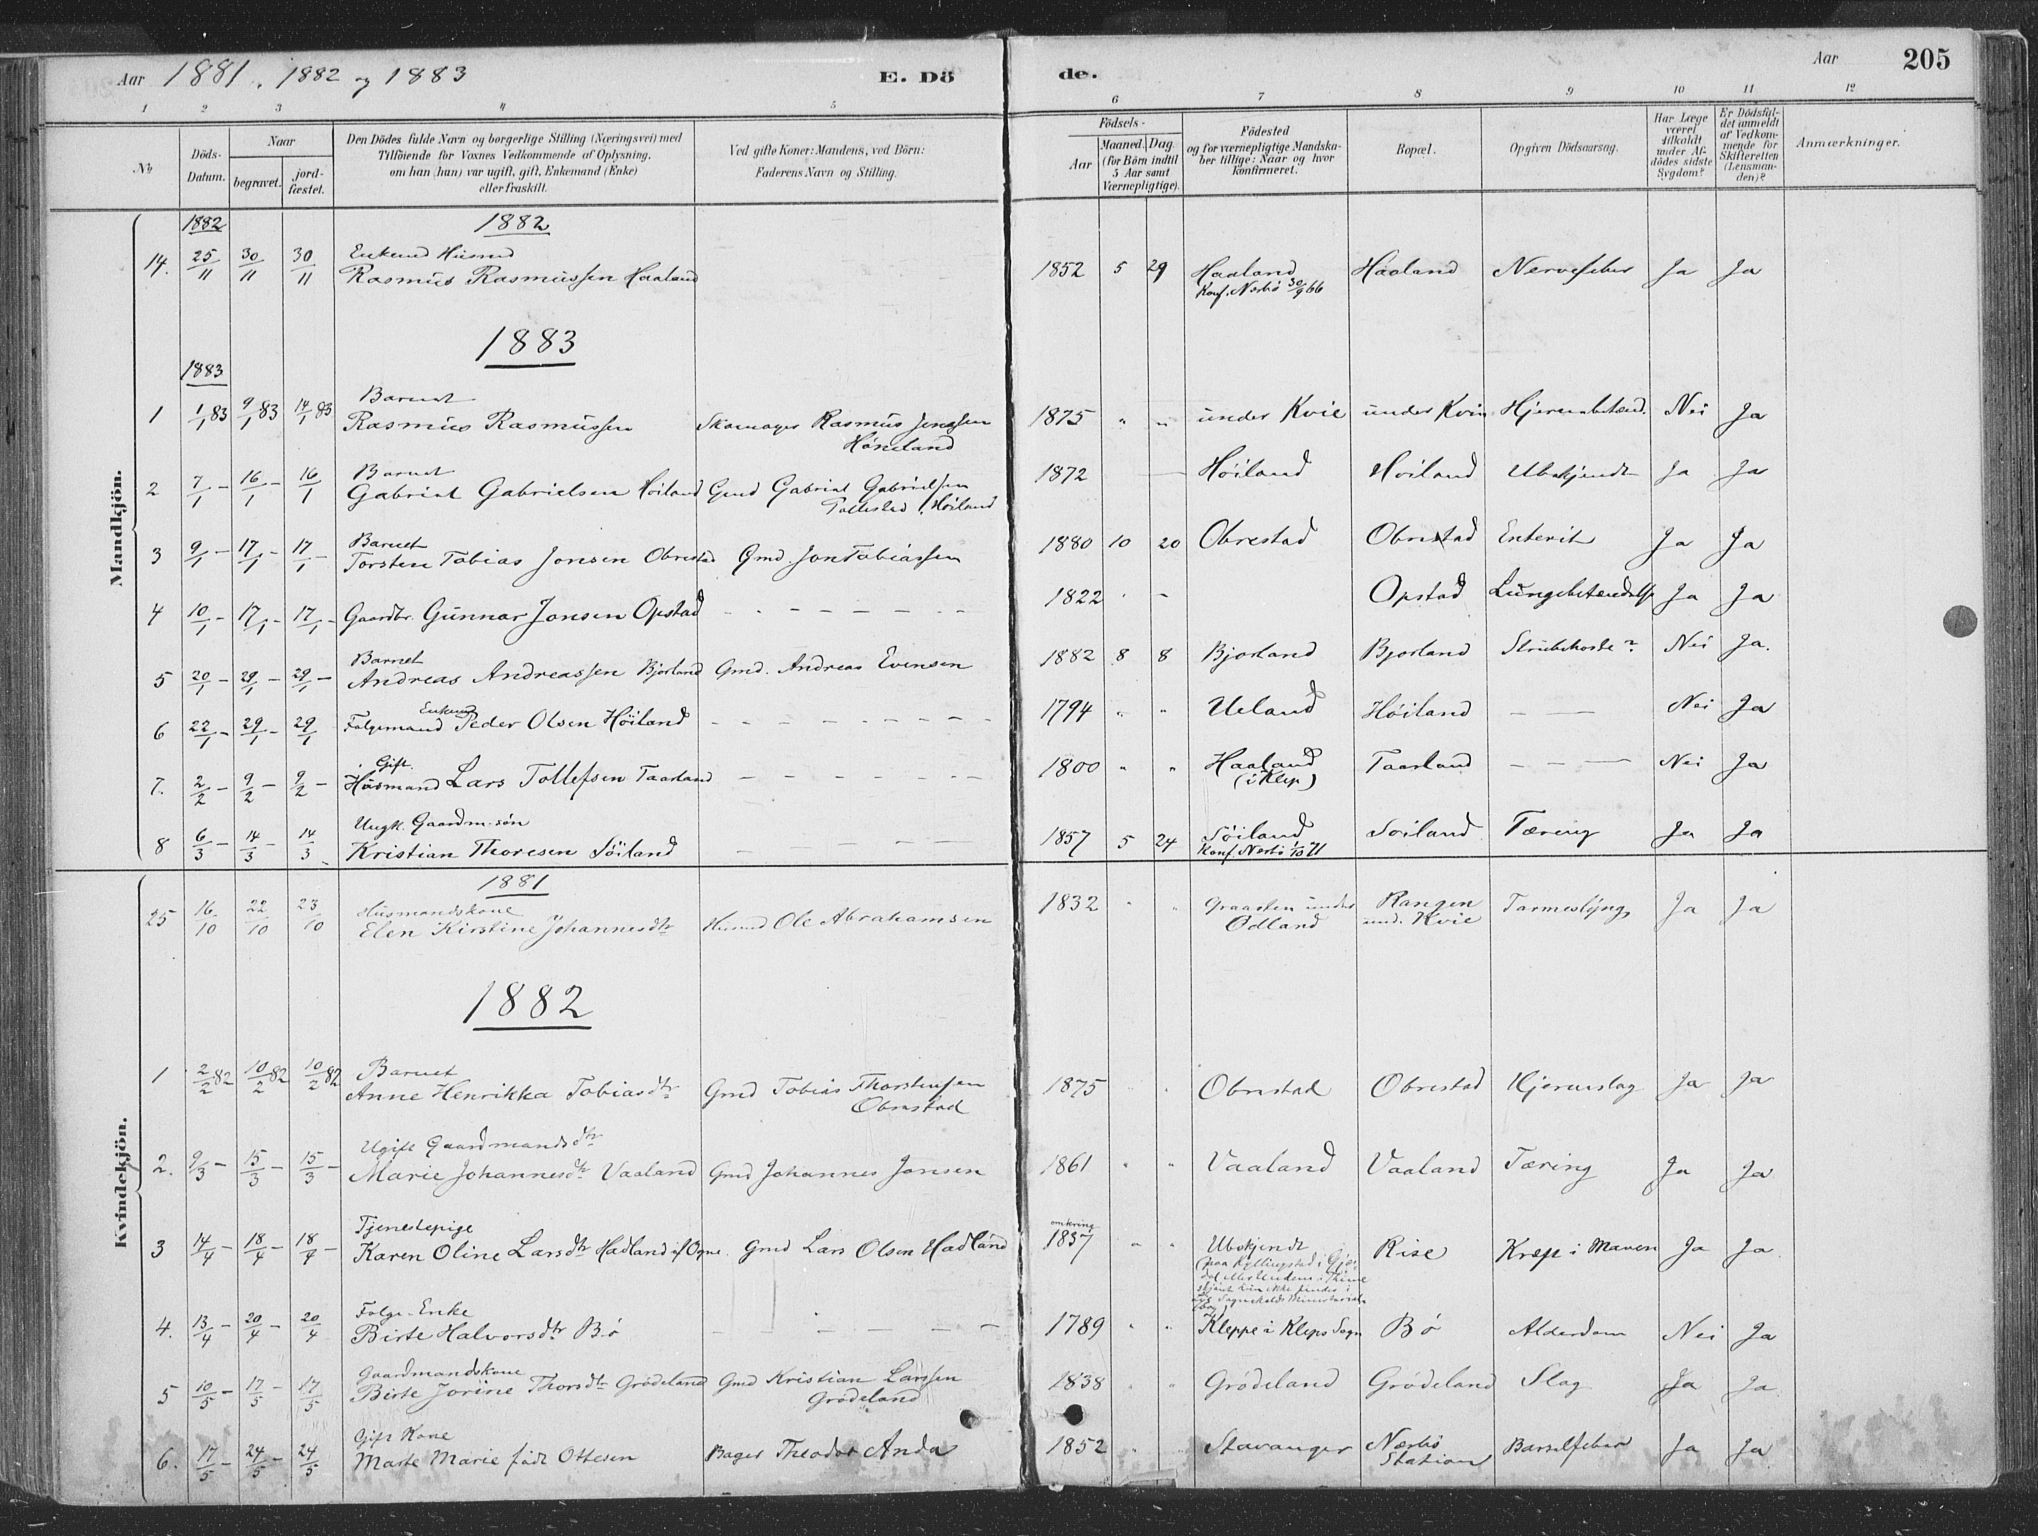 Aar 1881, 1882 og 1883 E. Dö de. Aar 205
1 2 3 4 5 6 7 8 9 10 11 12
No. Döds-Datum. Naar begravet. jord-fæstet.
Den Dödes fulde Navn og borgerlige Stilling (Næringsvei) med
Tilföiende for Voxnes Vedkommende af Oplysning,
om han (hun) var ugift, gift, Enkemand (Enke)
eller fraskilt.
Ved gifte Koner: Mandens, ved Börn:
Faderens Navn og Stilling.
Födsels-
Aar Maaned. Dag.
(for Börn indtil
5 Aar samt
Værnepligtige).
Födested
og for værnepligtige Mandska-
ber tillige: Naar og hvor
konfirmeret.
Bopæl.
Opgiven Dödsaarsag.
Har Læge
været
tilkaldt
under Af-
dödes sidste
Sygdom?
Er Dödsfal-
det anmeldt
af Vedkom-
mende for
Skifteretten
(Lensman-
den)?
Anmærkninger.
Mandkjön.
1882 1882
14. 25/11 30/11 30/11 Enkemd Husmd
Rasmus Rasmussen Haaland 1852 5 29 Haaland Haaland Nervefeber Ja Ja
Konf. Nærbö 30/9 66
1883
1883
1 1/1 83 9/1 83 14/1 83 Barnet
Rasmus Rasmussen Skomager Rasmus Jenssen 1875 " " under Kvie under Kvie Hjernebetænd. Nei Ja
Höneland
2 7/1 - 16/1 - 16/1 Barnet
Gabriel Gabrielsen Höiland Gmd Gabriel Gabrielsen 1872 — Höiland Höiland Ubekjendt Ja Ja
Höiland
3 9/1 - 17/1 - 17/1 - Barnet
Torsten Tobias Jonsen Obrestad Gmd Jon Tobiassen 1880 10 20 Obrestad Obrestad Enterit Ja Ja
4 10/1 - 17/1 - 17/1 - Gaardbr. Gunnar Jonsen Opstad - - - - - - 1822 - - Opstad Lungebetændelse Ja Ja
5 20/1 - 29/1 - 29/1 - Barnet
Andreas Andreassen Bjorland Gmd. Andreas Evensen 1882 8 8 Bjorland Bjorland Strubehoste? Nei Ja.
6 22/1 - 29/1 - 29/1 Enkemd
Folgemand Peder Olsen Höiland - - - - - - 1794 " " Ueland Höiland - — Nei Ja
7. 2/2 - 9/2 - 9/2 - Gift.
Husmand Lars Tollefsen Taarland - - - - - 1800 " " Haaland Taarland - - — Nei Ja
(i Klep)
8 6/3 - 14/3 - 14/3 Ungk. Gaardm.sön
Kristian Thoresen Söiland - - - - 1857 5 24 Söiland Soiland Tæring Ja Ja
Konf. Nærbö 1/10 71
Kvindekjön.
1881
25 16/10 22/10 23/10 Husmandskone
Elen Kirstine Johannesdtr Husmd Ole Abrahamsen 1832 " " Graasten under Rangen Tarmeslyng Ja Ja
Ödland und. Kvie
1882
1 2/2 82 10/2 82 10/2 82 Barnet
Anne Henrikka Tobiasdtr Gmd Tobias Thorstensen 1875 " " Obrestad Obrestad Hjerneslag Ja Ja
Obrestad
2. 9/3 - 15/3 - 15/3 - Ugift Gaardmandsdtr
Marie Johannesdtr Vaaland Gmd Johannes Jonsen 1861 " " Vaaland Vaaland Tæring Ja Ja
3 14/4 - 18/4 - 18/4 - Tjenestepige omkring
Karen Oline Larsdtr Hadland af Ogne. Gmd Lars Olsen Hadland 1837 " " Ubekjendt Rise Kræft i Maven Ja Ja
(paa Kyllingstad i Gjes-
dal eller Undem i Thime
skjönt hun ikke findes i
Sognekalds Ministerial-
bog)
4. 13/4 - 20/4 - 20/4 Folge-Enke
Birte Halvorsdtr Bö - - - - - 1789 " " Kleppe i Kleps Sogn Bö Alderdom Nei Ja
5 10/5 - 17/5 - 17/5 Gaardmandskone
Birte Jorine Thorsdtr Grödeland Gmd Kristian Larssen 1838 " " Grödeland Grödeland Slag Ja Ja
Grödeland
6. 17/5 - 24/5 - 24/5 Gift Kone
Marte Marie födt Ottesen Bager Theodor Anda 1852 " " Stavanger Nærbö Barselfeber Ja Ja
Station